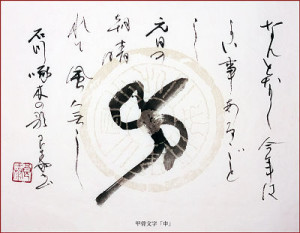 なんとなく今年は
よい事あるごと
し
元日の
朝晴
れて風無し
石川啄木の歌
甲骨文字「申」